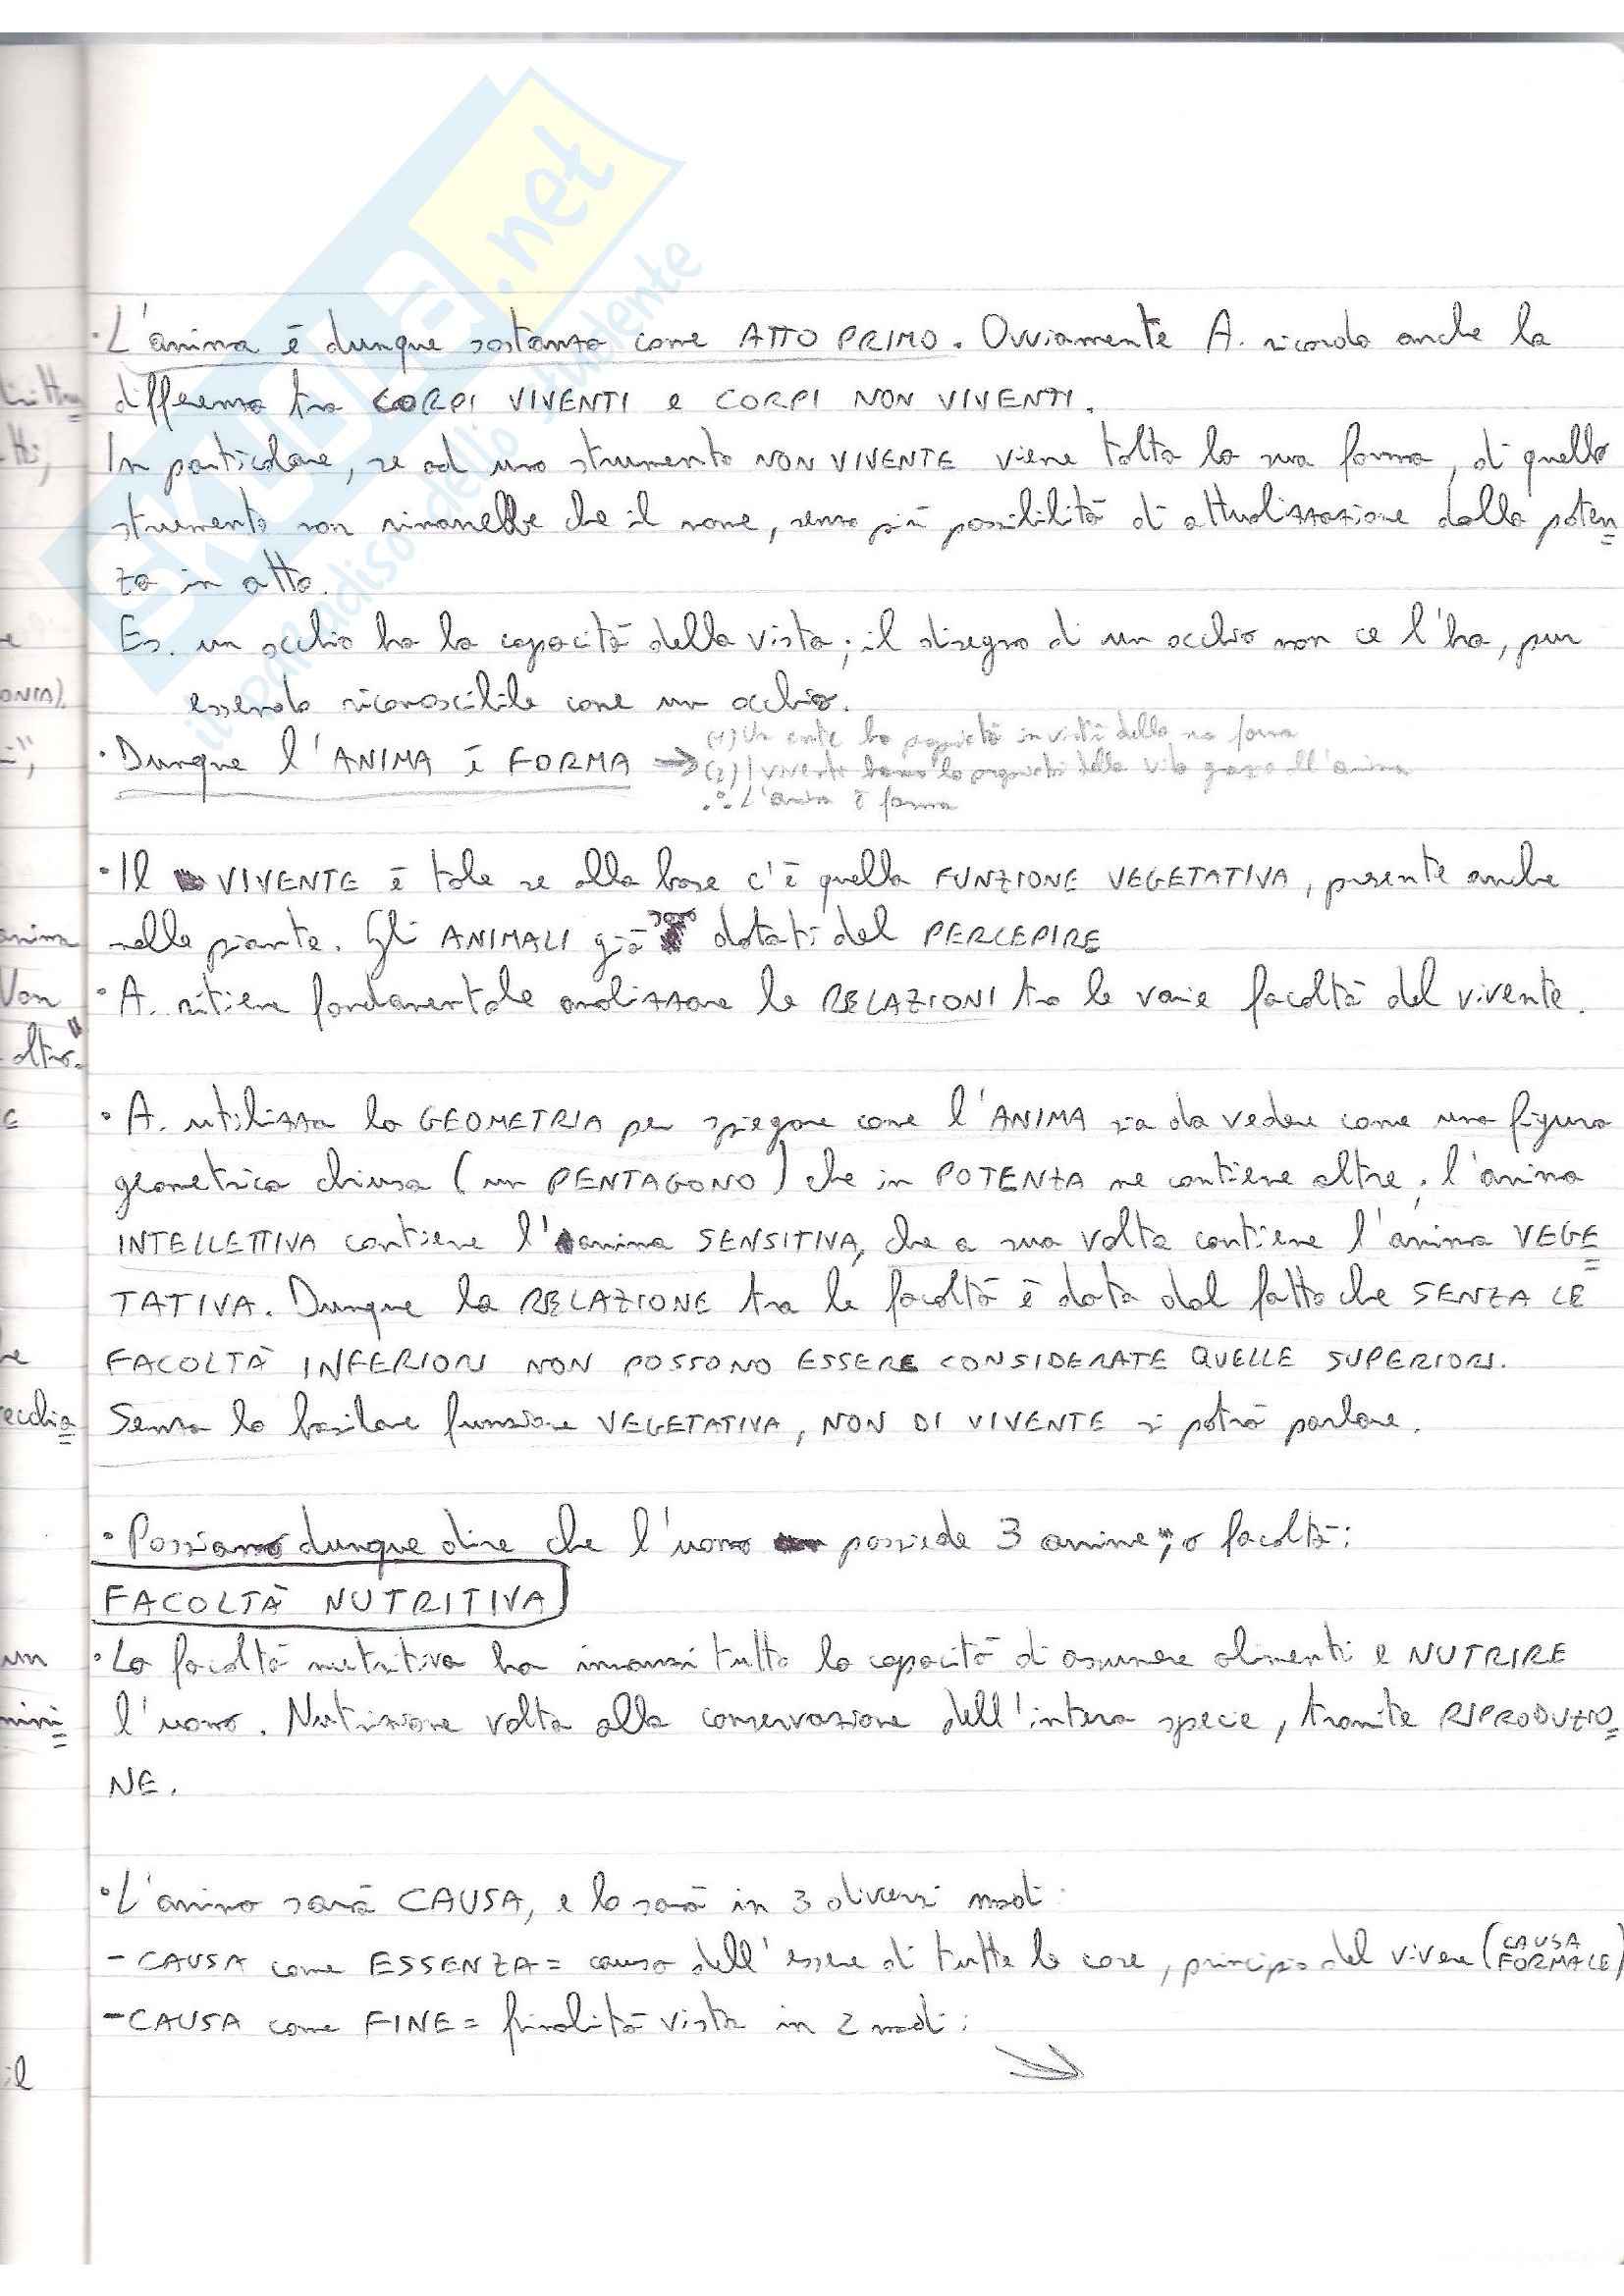 SKUOLA.net
il paradiso dello studente
· L'anima è dunque sostanza come ATTO PRIMO. Ovviamente A. ricorda anche la
differenza tra CORPI VIVENTI e CORPI NON VIVENTI.
In particolare, se ad uno strumento NON VIVENTE viene tolta la sua forma, di quello
strumento non rimanebbe che il nome, senza più possibilità di attualizzazione dalla poten=
za in atto.
Es. un occhio ha la capacità della vista; il disegno di un occhio non ce l'ha, pur
essendo riconoscibile come un occhio.
· Dunque l'ANIMA è FORMA →
(1) Un ente ha proprietà in virtù della sua forma
(2) I viventi hanno la proprietà della vita grazie all'anima
∴ L'anima è forma
· Il VIVENTE è tale se alla base c'è quella FUNZIONE VEGETATIVA, presente anche
nelle piante. Gli ANIMALI già sono dotati del PERCEPIRE
· A. ritiene fondamentale analizzare le RELAZIONI tra le varie facoltà del vivente.
· A. utilizza la GEOMETRIA per spiegare come l'ANIMA sia da vedere come una figura
geometrica chiusa (un PENTAGONO) che in POTENZA ne contiene altre; l'anima
INTELLETTIVA contiene l'anima SENSITIVA, che a sua volta contiene l'anima VEGE=
TATIVA. Dunque la RELAZIONE tra le facoltà è data dal fatto che SENZA LE
FACOLTÀ INFERIORI NON POSSONO ESSERE CONSIDERATE QUELLE SUPERIORI.
Senza la basilare funzione VEGETATIVA, NON DI VIVENTE si potrà parlare.
· Possiamo dunque dire che l'uomo possiede 3 anime", o facoltà:
FACOLTÀ NUTRITIVA
· La facoltà nutritiva ha innanzitutto la capacità di assumere alimenti e NUTRIRE
l'uomo. Nutrizione volta alla conservazione dell'intera specie, tramite RIPRODUZIO=
NE.
· L'anima sarà CAUSA, e lo sarà in 3 diversi modi:
- CAUSA come ESSENZA = causa dell'essere di tutte le cose, principio del vivere (CAUSA FORMALE)
- CAUSA come FINE = finalità vista in 2 modi: